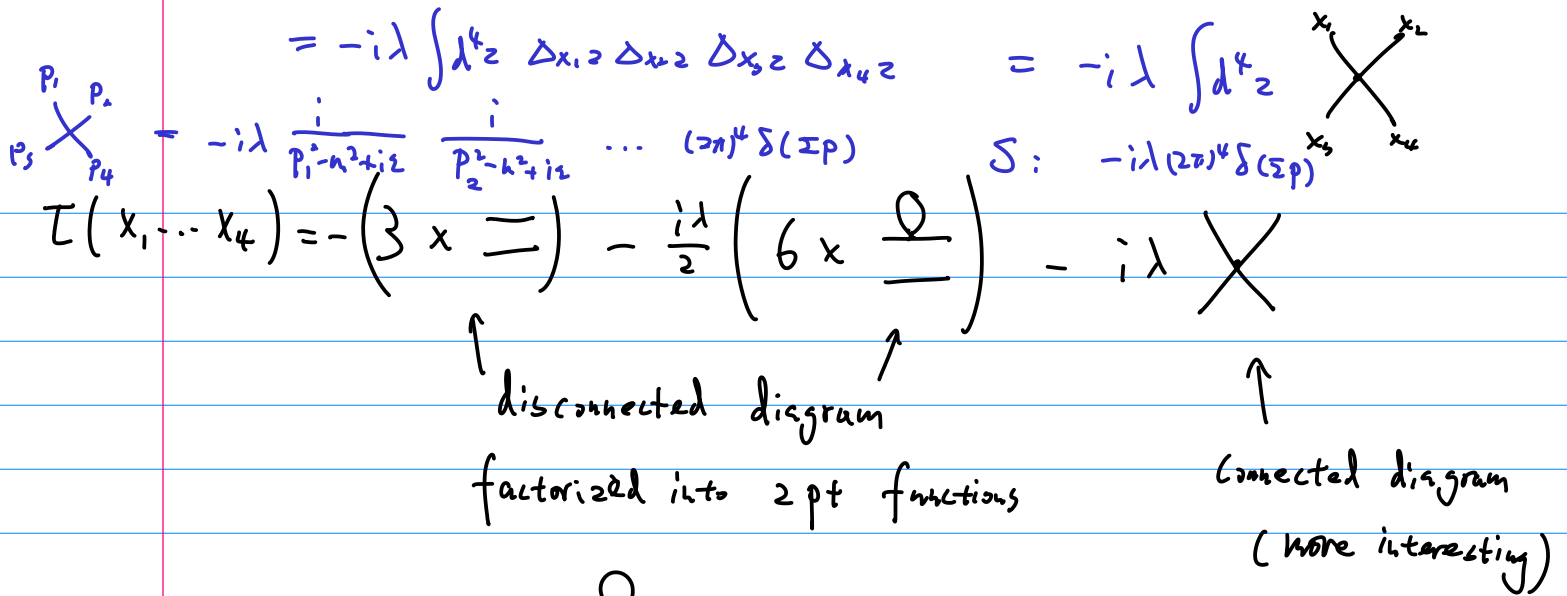 = -iλ ∫d⁴z Δx₁z Δx₂z Δx₃z Δx₄z = -iλ ∫d⁴z x₁ x₂ x₃ x₄
p₁ p₂ p₃ p₄ = -iλ i/(p₁²-m²+iε) i/(p₂²-m²+iε) ... (2π)⁴ δ(Σp) S: -iλ(2π)⁴δ(Σp)
τ(x₁...x₄) = -(3 × ) - iλ/2 (6 × ) - iλ
disconnected diagram
factorized into 2 pt functions
connected diagram
(more interesting)